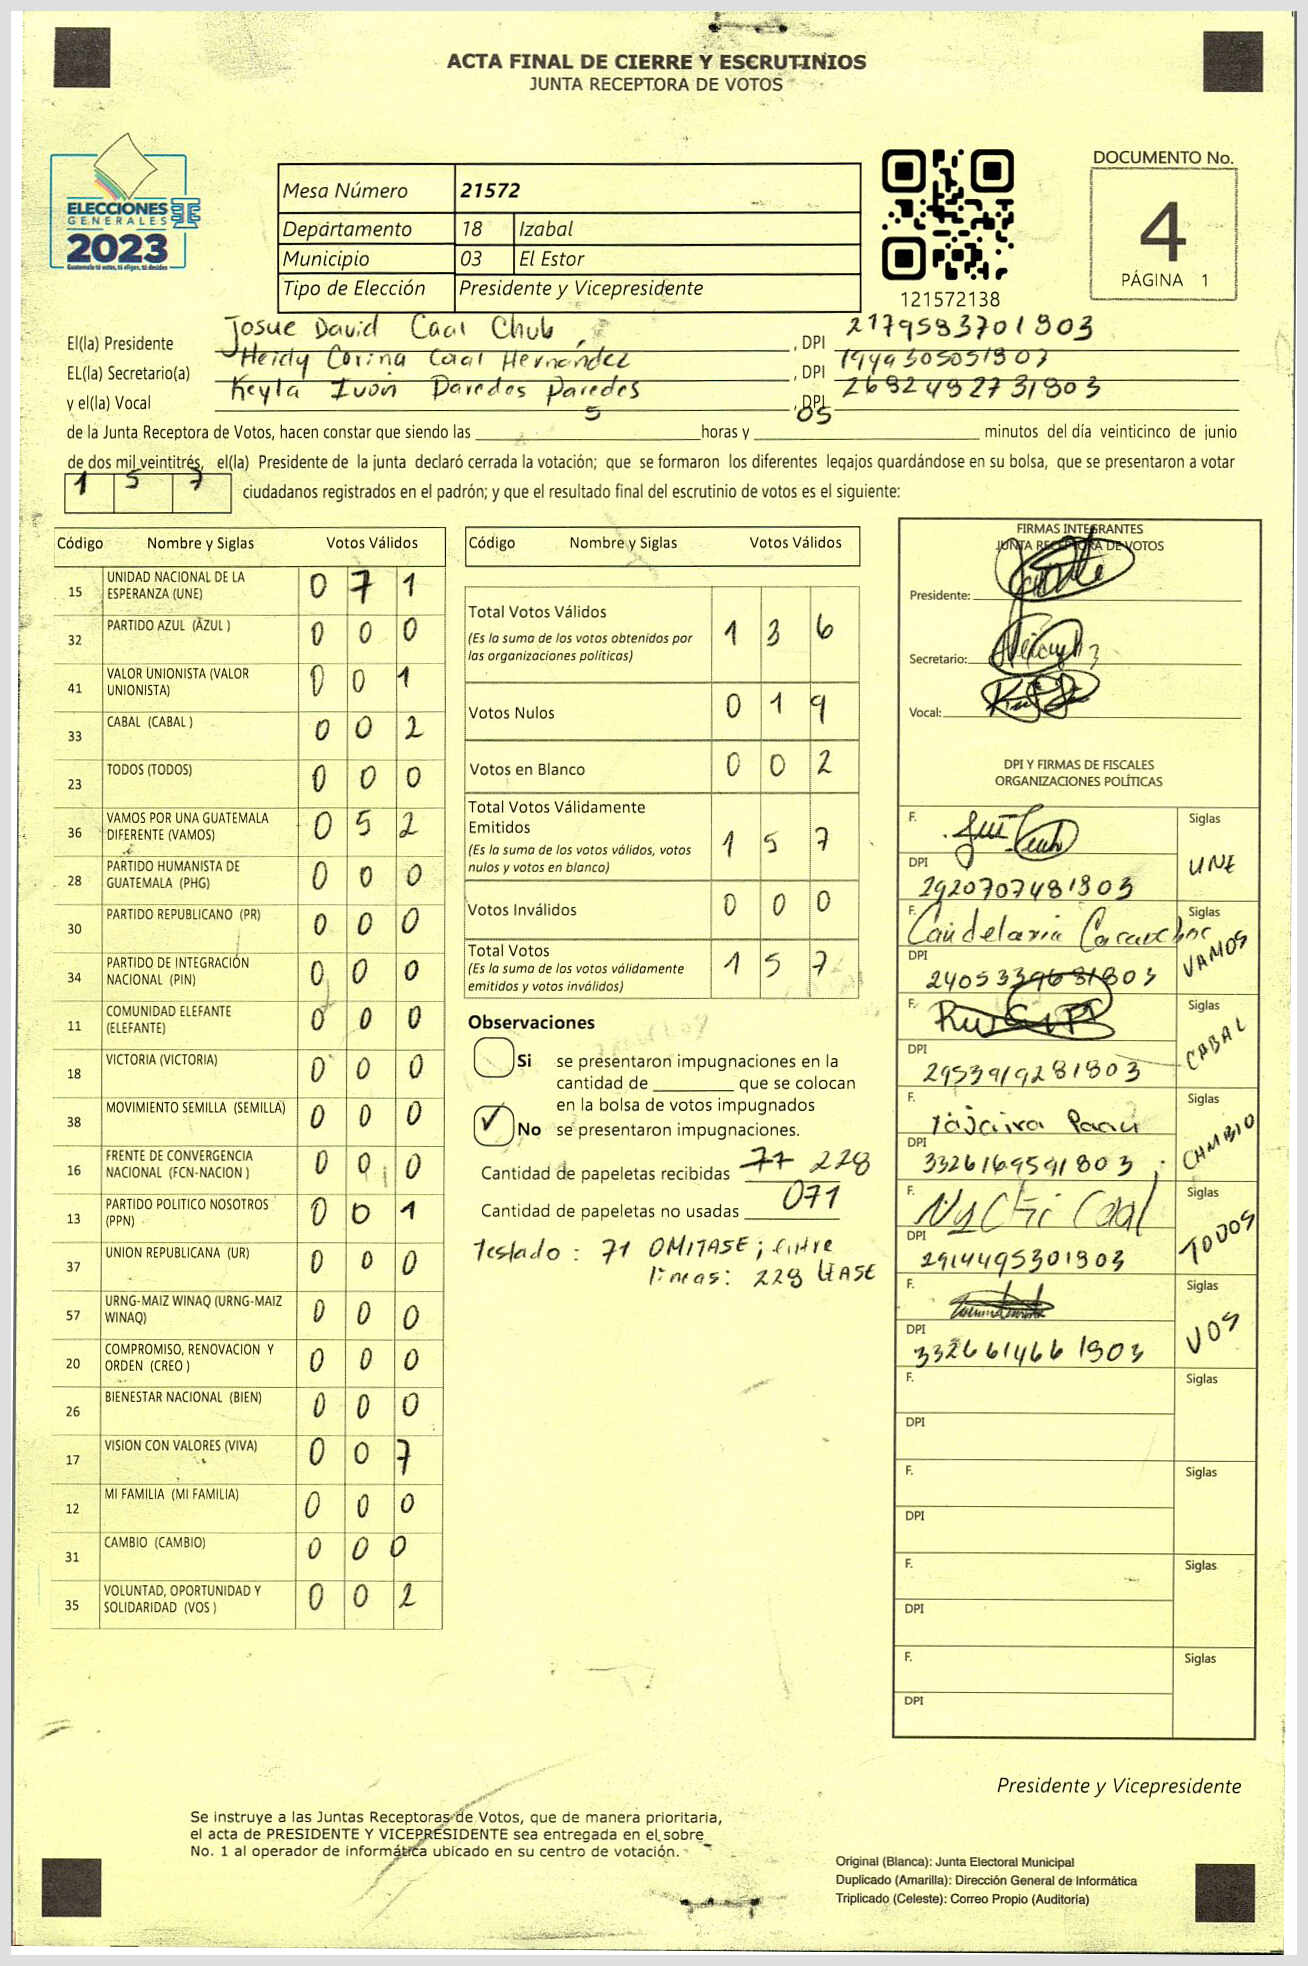 ACTA FINAL DE CIERRE Y ESCRUTINIOS
JUNTA RECEPTORA DE VOTOS
ELECCIONES
GENERALES
2023
Guatemala tú votas, tú eliges, tú decides
Mesa Número 21572
Departamento 18 Izabal
Municipio 03 El Estor
Tipo de Elección Presidente y Vicepresidente
121572138
DOCUMENTO No.
4
PÁGINA 1
El(la) Presidente Josue David Caal Chub, DPI 2179583701803
EL(la) Secretario(a) Heidy Corina Caal Hernández, DPI 1949305051807
y el(la) Vocal Keyla Ivon Paredes Paredes, DPI 2682492731803
de la Junta Receptora de Votos, hacen constar que siendo las 5 horas y 05 minutos del día veinticinco de junio
de dos mil veintitrés, el(la) Presidente de la junta declaró cerrada la votación; que se formaron los diferentes legajos guardándose en su bolsa, que se presentaron a votar
1 5 7 ciudadanos registrados en el padrón; y que el resultado final del escrutinio de votos es el siguiente:
Código Nombre y Siglas Votos Válidos
15 UNIDAD NACIONAL DE LA ESPERANZA (UNE) 0 7 1
32 PARTIDO AZUL (AZUL ) 0 0 0
41 VALOR UNIONISTA (VALOR UNIONISTA) 0 0 1
33 CABAL (CABAL ) 0 0 2
23 TODOS (TODOS) 0 0 0
36 VAMOS POR UNA GUATEMALA DIFERENTE (VAMOS) 0 5 2
28 PARTIDO HUMANISTA DE GUATEMALA (PHG) 0 0 0
30 PARTIDO REPUBLICANO (PR) 0 0 0
34 PARTIDO DE INTEGRACIÓN NACIONAL (PIN) 0 0 0
11 COMUNIDAD ELEFANTE (ELEFANTE) 0 0 0
18 VICTORIA (VICTORIA) 0 0 0
38 MOVIMIENTO SEMILLA (SEMILLA) 0 0 0
16 FRENTE DE CONVERGENCIA NACIONAL (FCN-NACION ) 0 0 0
13 PARTIDO POLITICO NOSOTROS (PPN) 0 0 1
37 UNION REPUBLICANA (UR) 0 0 0
57 URNG-MAIZ WINAQ (URNG-MAIZ WINAQ) 0 0 0
20 COMPROMISO, RENOVACION Y ORDEN (CREO ) 0 0 0
26 BIENESTAR NACIONAL (BIEN) 0 0 0
17 VISION CON VALORES (VIVA) 0 0 7
12 MI FAMILIA (MI FAMILIA) 0 0 0
31 CAMBIO (CAMBIO) 0 0 0
35 VOLUNTAD, OPORTUNIDAD Y SOLIDARIDAD (VOS ) 0 0 2
Código Nombre y Siglas Votos Válidos
Total Votos Válidos 1 3 6
(Es la suma de los votos obtenidos por
las organizaciones políticas)
Votos Nulos 0 1 9
Votos en Blanco 0 0 2
Total Votos Válidamente
Emitidos 1 5 7
(Es la suma de los votos válidos, votos
nulos y votos en blanco)
Votos Inválidos 0 0 0
Total Votos 1 5 7
(Es la suma de los votos válidamente
emitidos y votos inválidos)
Observaciones
Si se presentaron impugnaciones en la
cantidad de ________ que se colocan
en la bolsa de votos impugnados
✓ No se presentaron impugnaciones.
Cantidad de papeletas recibidas 77 228
Cantidad de papeletas no usadas 071
Testado: 71 OMITASE; Entre
líneas: 228 LEASE
FIRMAS INTEGRANTES
JUNTA RECEPTORA DE VOTOS
Presidente:
Secretario:
Vocal:
DPI Y FIRMAS DE FISCALES
ORGANIZACIONES POLÍTICAS
F. Siglas UNE
DPI 2920707481803
F. Candelaria Siglas VAMOS
DPI 2405339681803
F. Siglas CABAL
DPI 2953919281803
F. Siglas CAMBIO
DPI 3326169591803
F. Siglas TODOS
DPI 2914495301803
F. Siglas VOS
DPI 3326614661803
F. Siglas
DPI
F. Siglas
DPI
F. Siglas
DPI
F. Siglas
DPI
Presidente y Vicepresidente
Se instruye a las Juntas Receptoras de Votos, que de manera prioritaria,
el acta de PRESIDENTE Y VICEPRESIDENTE sea entregada en el sobre
No. 1 al operador de informática ubicado en su centro de votación.
Original (Blanca): Junta Electoral Municipal
Duplicado (Amarilla): Dirección General de Informática
Triplicado (Celeste): Correo Propio (Auditoría)